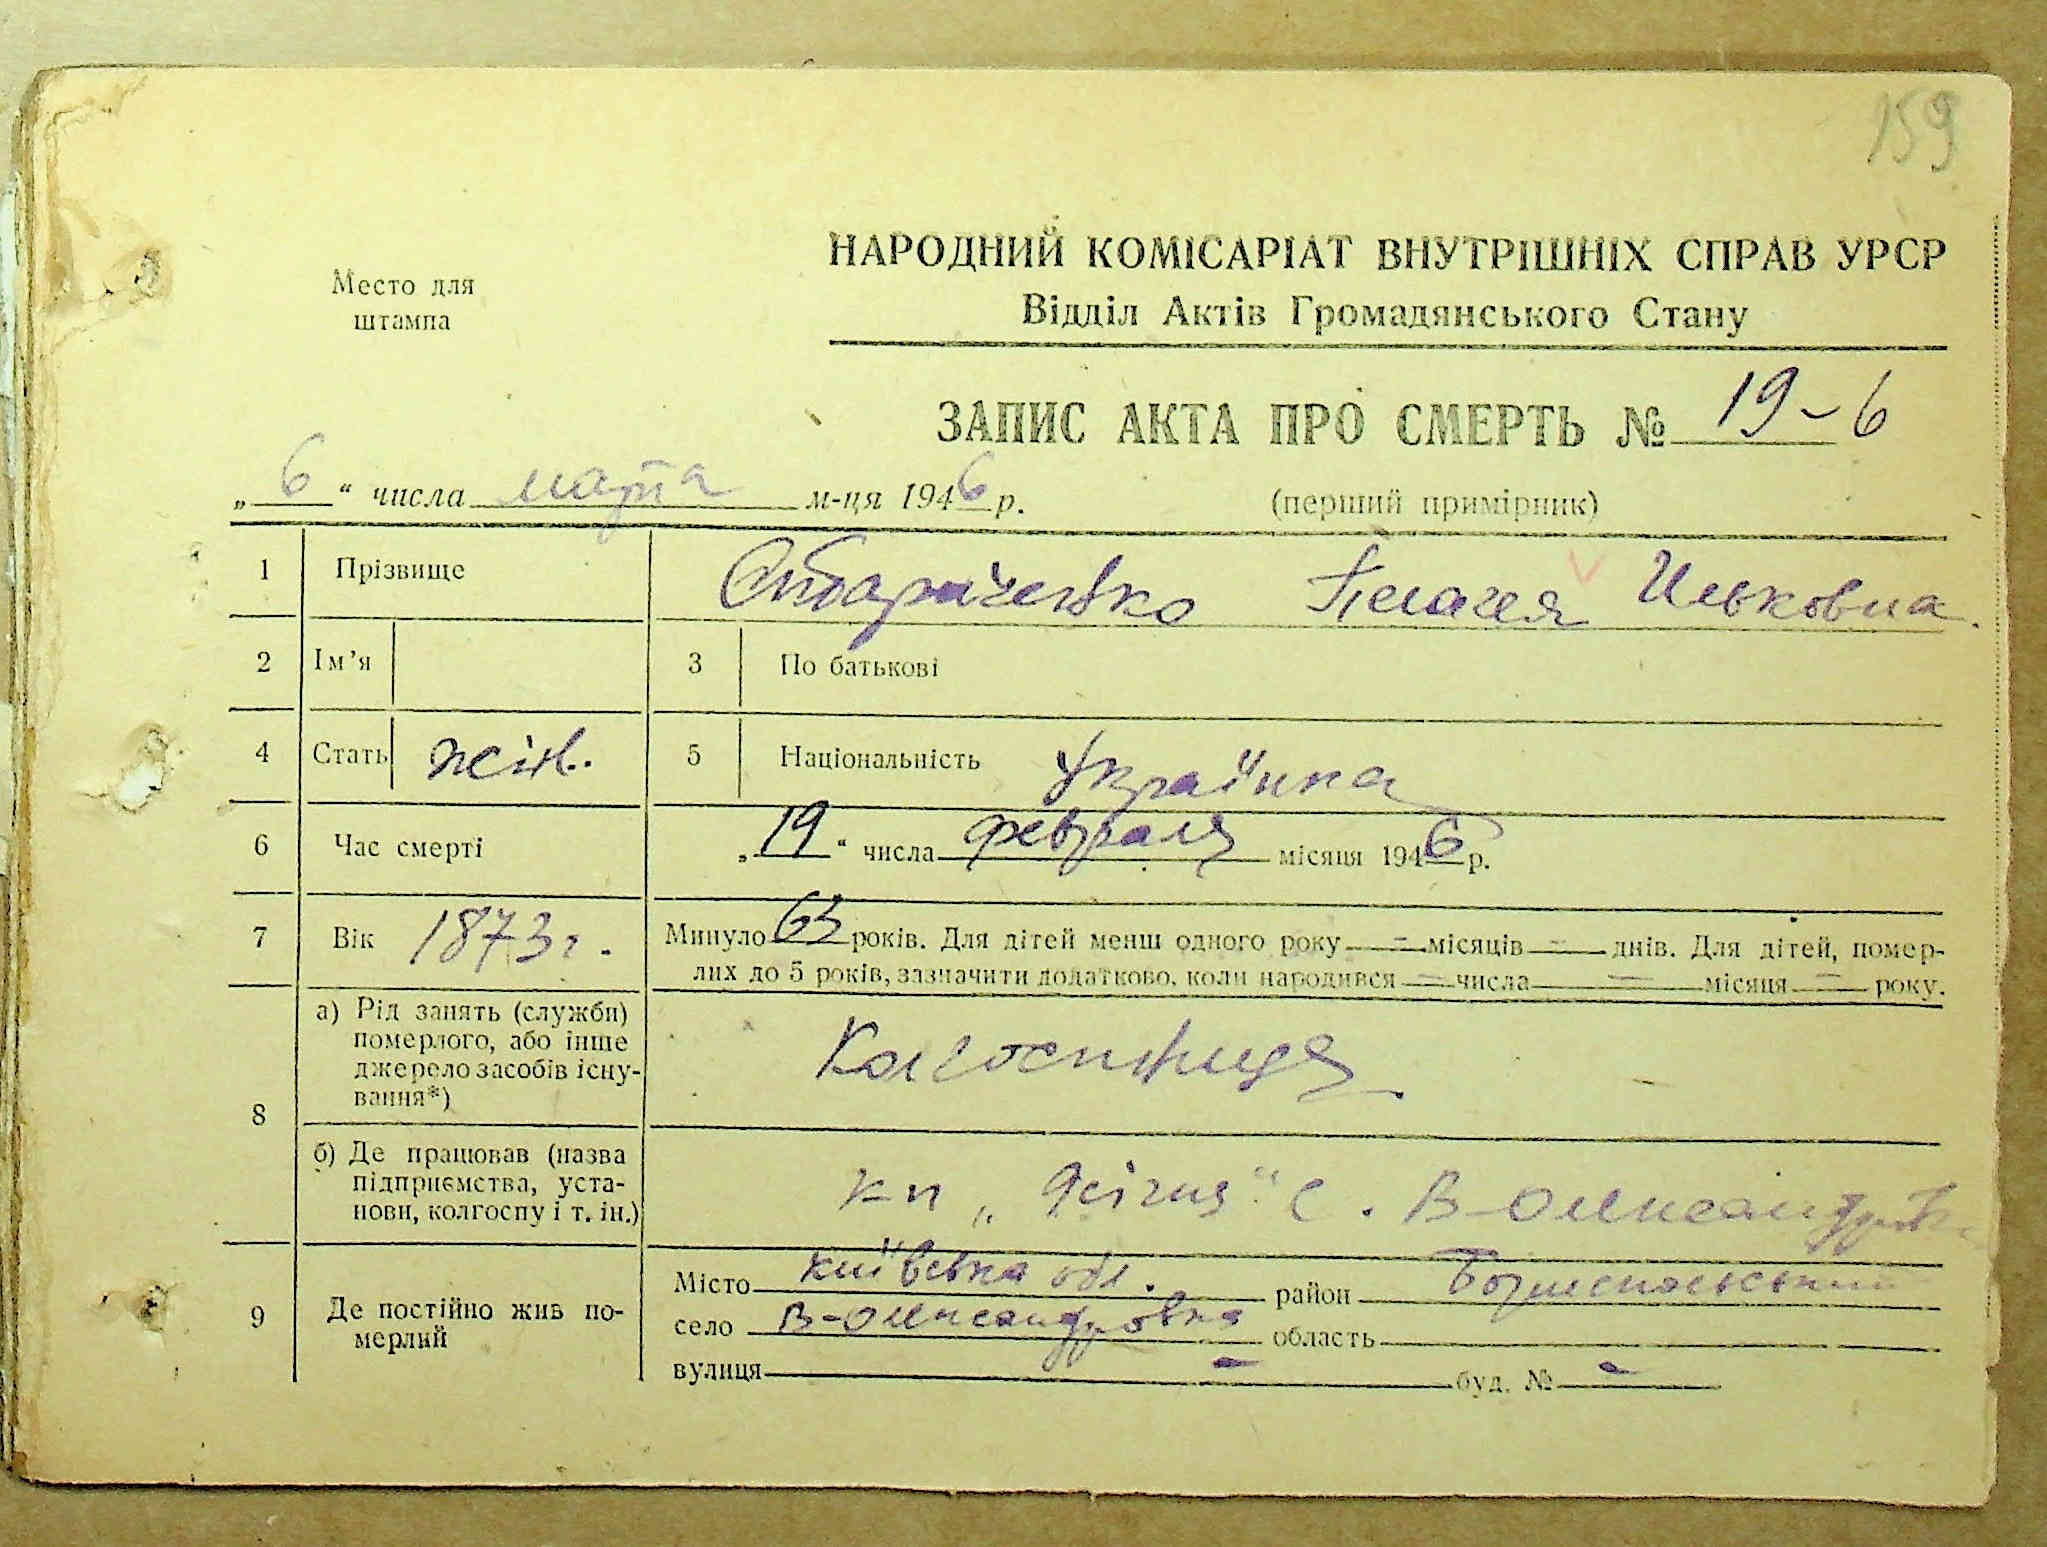 159
Место для
штампа
НАРОДНИЙ КОМІСАРІАТ ВНУТРІШНІХ СПРАВ УРСР
Відділ Актів Громадянського Стану
ЗАПИС АКТА ПРО СМЕРТЬ № 19-6
„ 6 “ числа марта м-ця 1946 р. (перший примірник)
1 Прізвище Пелагея Ильковна
2 Ім’я 3 По батькові
4 Стать жін. 5 Національність Українка
6 Час смерті „ 19 “ числа февраля місяця 1946 р.
7 Вік 1873 г. Минуло 63 років. Для дітей менш одного року - місяців - днів. Для дітей, помер-
лих до 5 років, зазначити додатково, коли народився - числа - місяця - року.
8 а) Рід занять (служби)
померлого, або інше
джерело засобів існу-
вання*) Колгоспниця
б) Де працював (назва
підприємства, уста-
нови, колгоспу і т. ін.) с. В-Олександровка
9 Де постійно жив по-
мерлий
Місто Київська обл. район Бориспольський
село В-Олександровка область
вулиця - буд. № -